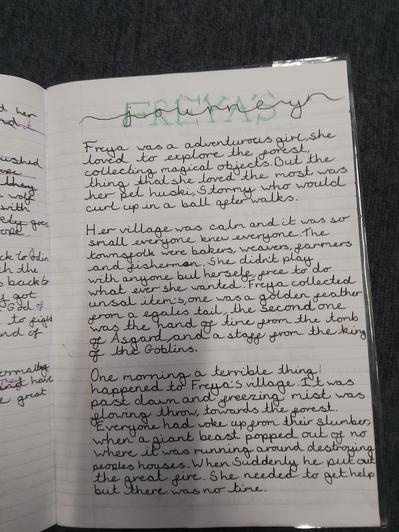 d her
nd
FREYA'S
journey
Freya was a adventurous girl, she
loved to explore the forest,
collecting magical objects. But the
thing that she loved the most was
her pet huski, Stormy who would
curl up in a ball after walks.
Her village was calm and it was so
small everyone knew everyone. The
townsfolk were bakers, weavers, farmers
and fisherman. She didn't play
with anyone but herself free to do
what ever she wanted. Freya collected
unsal item's, one was a golden feather
from a egales tail, the second one
was the hand of time from the tomb
of Asgard and a staff from the king
of the Goblins.
One morning a terrible thing
happened to Freya's village. It was
past dawn and freezing mist was
flowing throw, towards the forest.
Everyone had woke up from their slumber,
when a giant beast popped out of no
where it was running around destroying
peoples houses. When Suddenly he put out
the great fire. She needed to get help
but there was no time.
ushed
they
wolf
with
goes
ck to Odin
ch the
back to
got
God of
to fight
nd of
ormally
have
e great